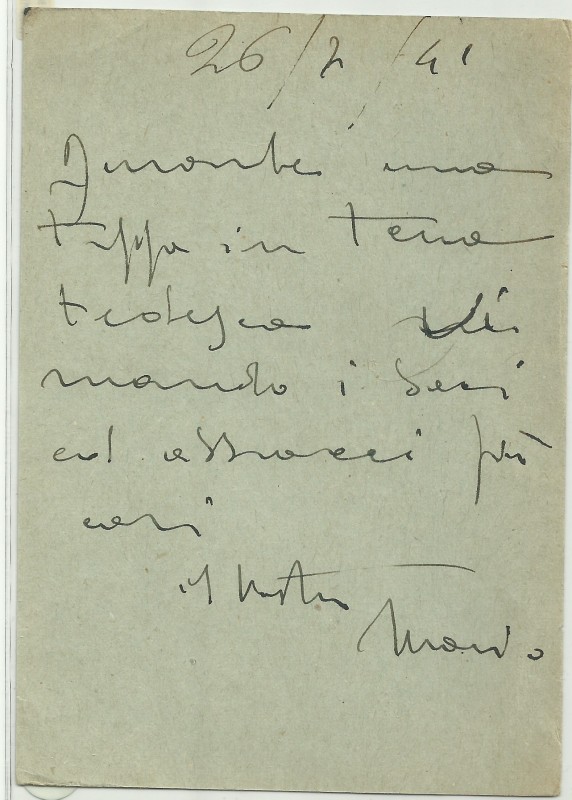 26/7/41
Durante una
tappa in terra
tedesca Vi
mando i baci
ed abbracci più
cari
il Vostro
Mario